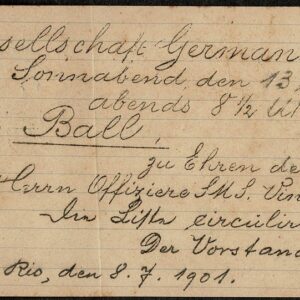 sellschaft German
Sonnabend, den 13.
abends 8 1/2 U
Ball,
zu Ehren de
Herrn Offiziere S.M.S. Vin
Die Liste circulir
Der Vorstan
Rio, den 8. 7. 1901.